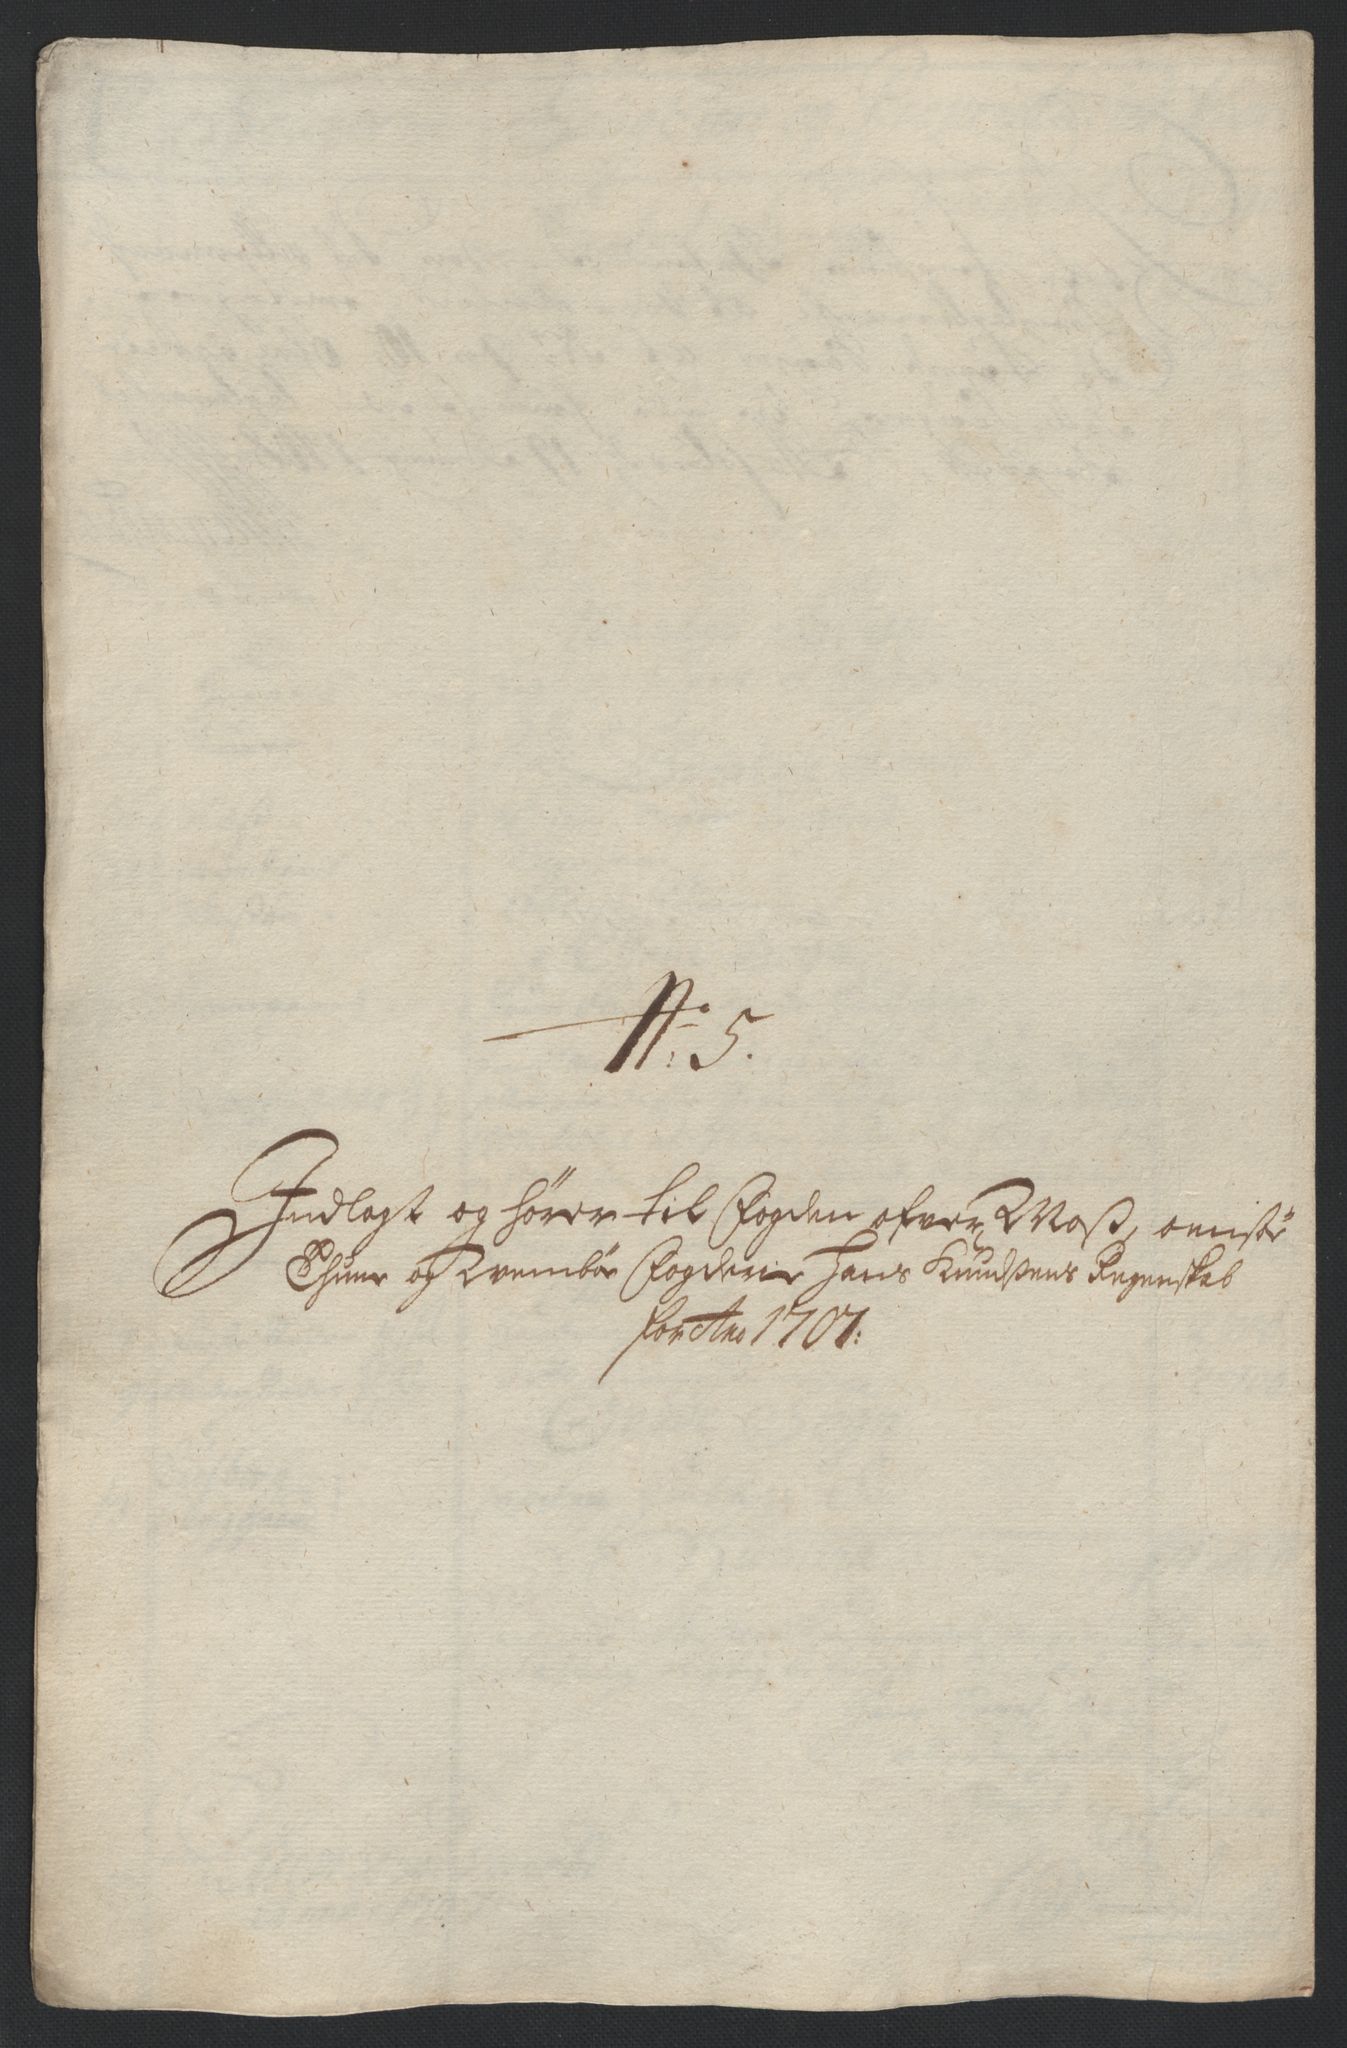 No: 5.
Indlagt og hörer til Fogden ofver Moss, onnsöe
Thune og Veemböe Fogderie Hans Knudsens Regenskab
for Ano 1707: